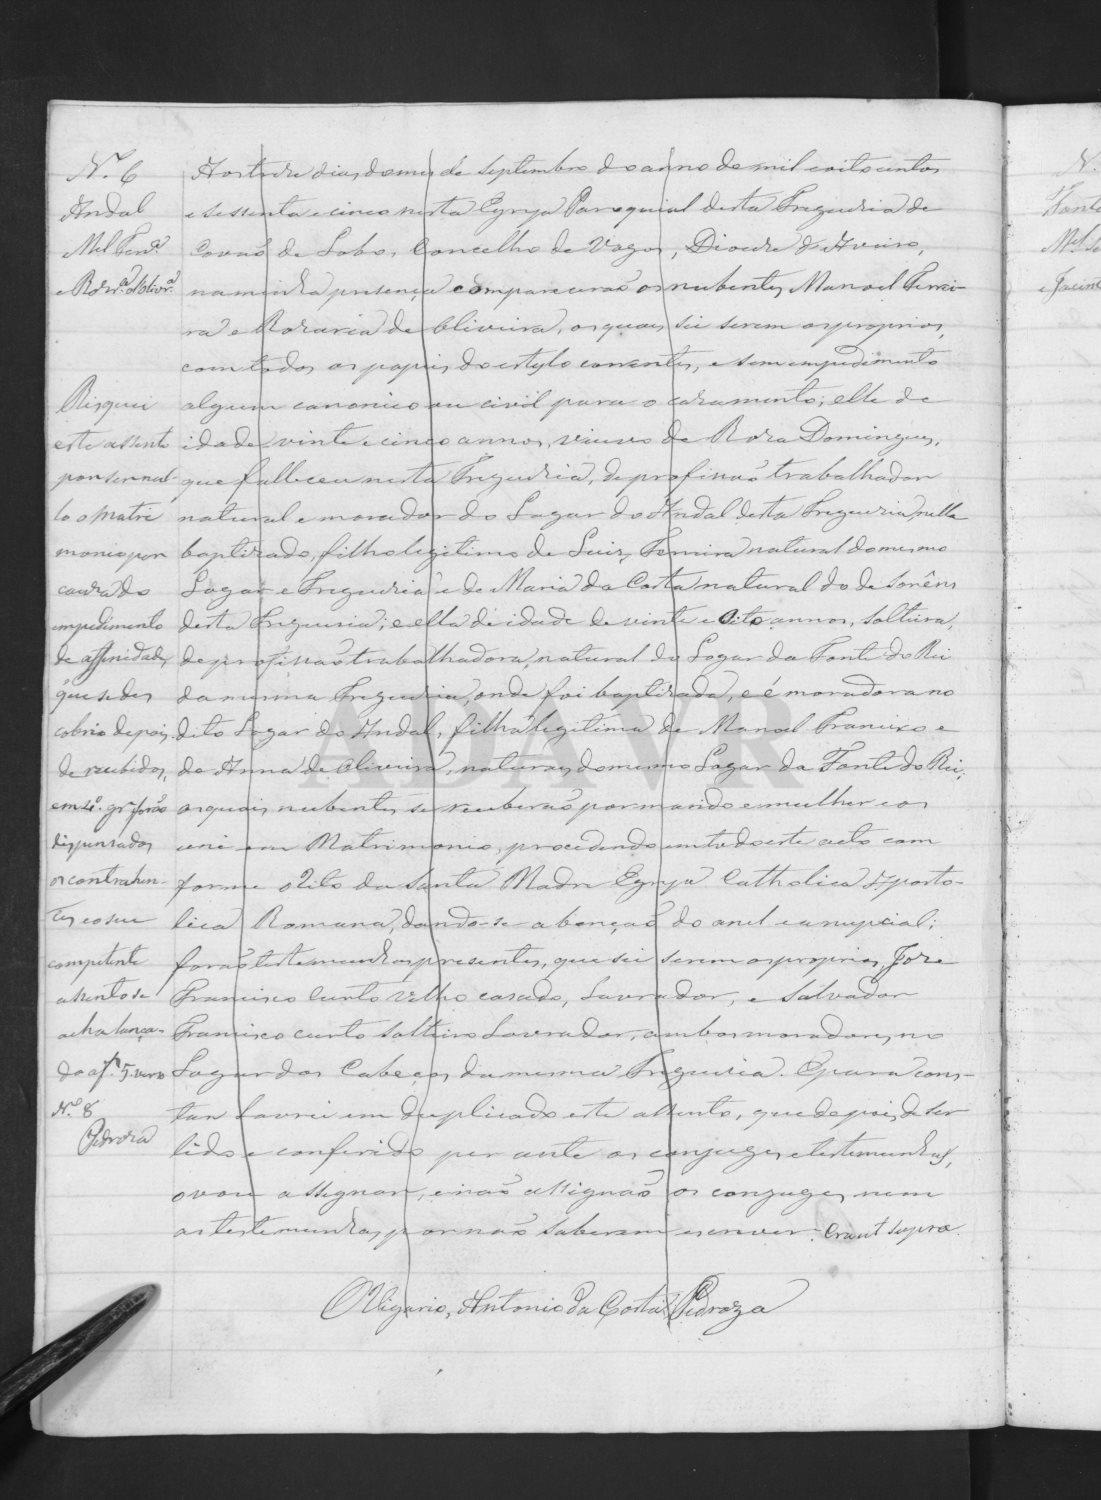 N.º 6
Andal
M.el Ferr.ª
e Rozr.ª d'Olivr.ª
Risquei
este assento
por ser nul-
lo o Matri
monio por
cauza do
empedimento
de affinidade
que se des
cobrio depois
de recebidos,
em 2.º gr. forão
dispensados
os contrahen-
tes e o seu
competente
assento se
acha lança-
do a f. 5. verso
N.º 8
Pedroza
Aos treze dias do mes de Septembro do anno de mil e oito centos
e sessenta e cinco nesta Egreja Paroquial desta Freguezia de
Covaõ de Lobo, Concelho de Vagos, Diocese d'Aveiro,
na minha presença comparecerão os nubentes Manoel Ferrei-
ra e Rozaria de Oliveira, os quaes sei serem os proprios,
com todos os papeis do estylo correntes, e sem empedimento
algum canonico ou civil para o cazamento; elle de
idade vinte e cinco annos, viuvo de Roza Domingues,
que falleceu nesta Freguezia, de profissaõ trabalhador
natural e morador do Lugar do Andal desta Freguezia, nella
baptizado, filho legitimo de Luis Ferreira natural do mesmo
Lugar e Freguezia e de Maria da Costa natural do de Sorêns
desta Freguezia; e ella de idade de vinte e oito annos, solteira,
de profissaõ trabalhadora, natural do Lugar da Fonte do Rei
da mesma Freguezia, onde foi baptizada, e é moradora no
dito Lugar do Andal, filha legitima de Manoel Francisco e
de Anna de Oliveira, naturaes do mesmo Lugar da Fonte do Rei,
os quaes nubentes se receberaõ por marido e mulher e os
uni em Matrimonio, procedendo em todo este acto com
forme o Rito da Santa Madre Egreja Catholica Aposto-
lica Romana, dando-se a bençaõ do anel e a nupcial;
foraõ testemunhas presentes, que sei serem os proprios, Joze
Francisco Curto Velho cazado, Lavrador, e Salvador
Francisco Curto solteiro Lavrador, ambos moradores no
Lugar dos Cabeços da mesma Freguezia. E para cons-
tar lavrei em duplicado este assento, que depois de ser
lido e conferido per ante os conjuges e testemunhas,
o vou assignar, e naõ assignaõ os conjuges nem
as testemunhas por naõ saberem escrever. Era ut supra.
O Vigario, Antonio da Costa Pedroza
N.
M.el
ADAVR